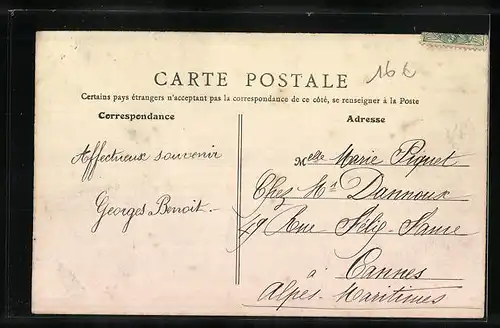 16€
CARTE POSTALE
Certains pays étrangers n'acceptant pas la correspondance de ce côté, se renseigner à la Poste
Correspondance
Adresse
Affectueux souvenir
Georges Benoit.
Melle Marie Piquet
Chez Mr Dannoux
49 Rue Félix-Faure
à Cannes
Alpes-Maritimes